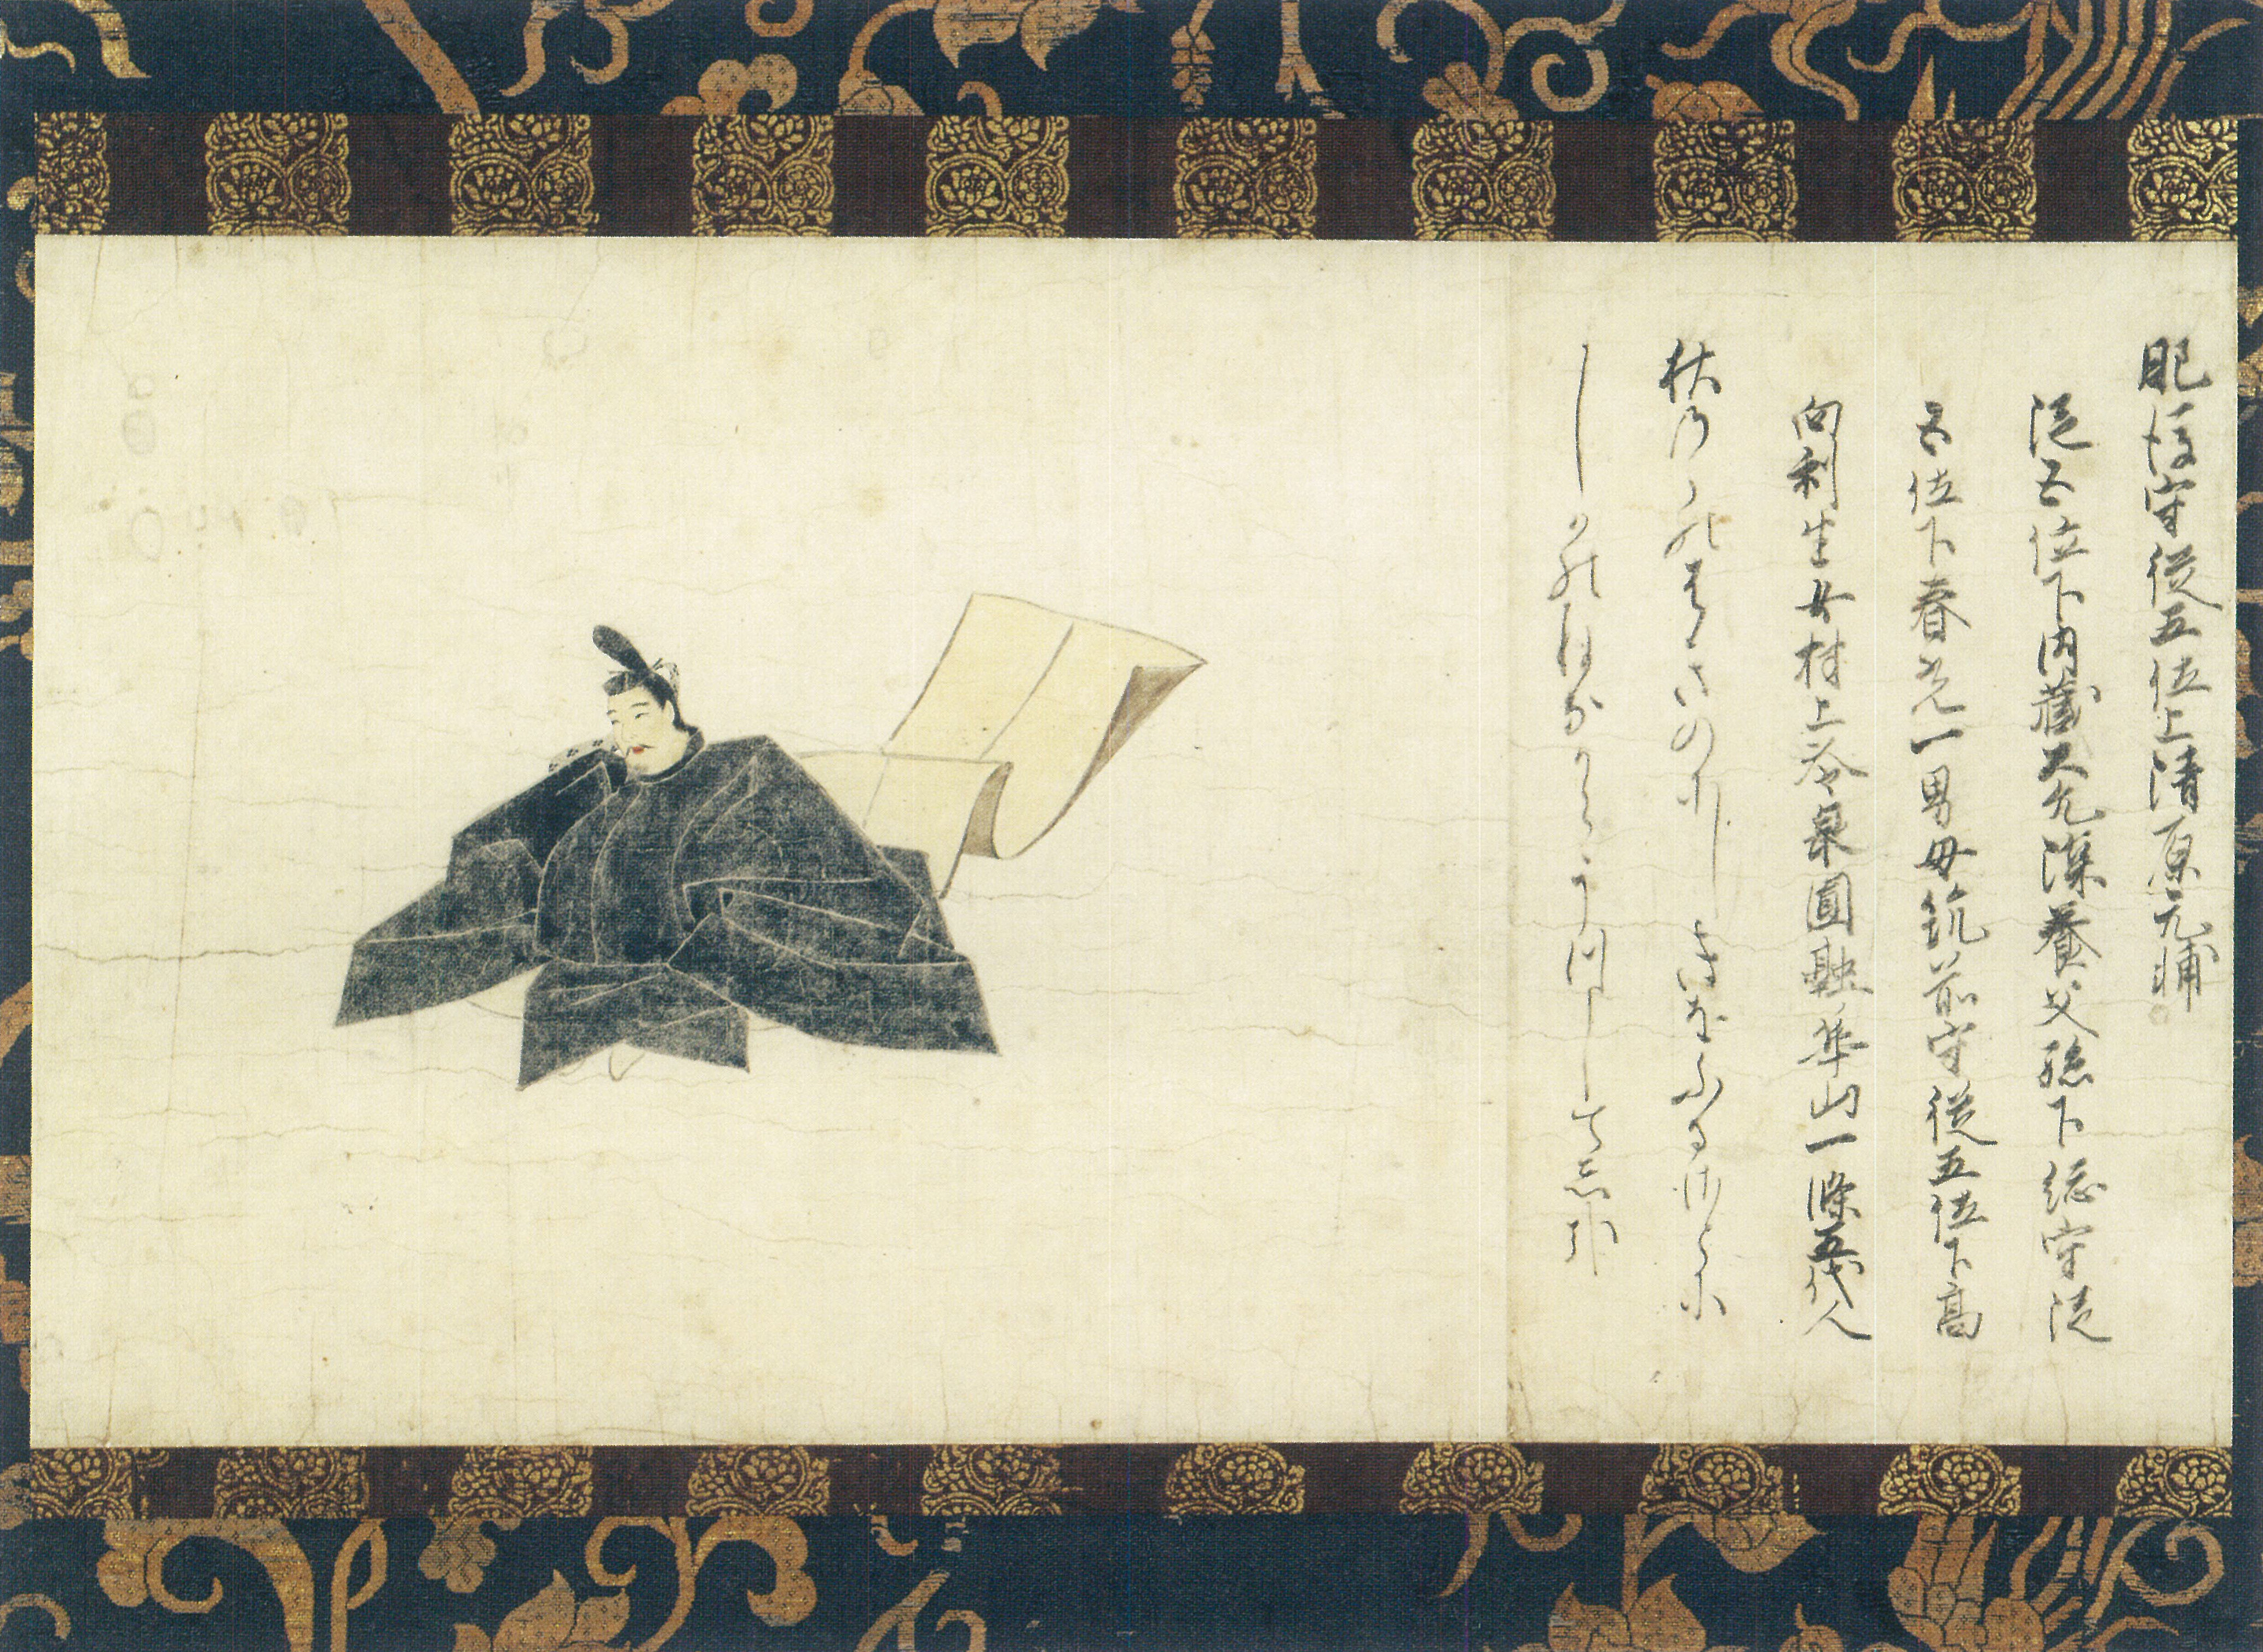 肥後守従五位上清原元輔
従五位下内蔵大允深養父孫下総守従
五位下春光一男母筑前守従五位下高
向利生女村上冷泉圓融華山一條五代人
秋乃ゝ能はきのにしきをふるさとに
しかのねなからうつしてし